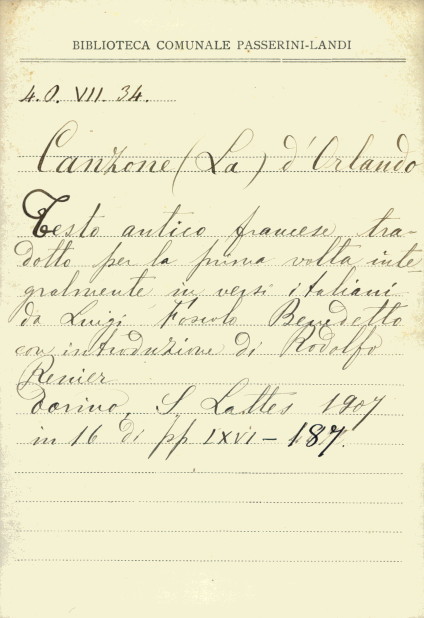 BIBLIOTECA COMUNALE PASSERINI-LANDI
4.O. VII. 34.
Canzone (La) d'Orlando
Testo antico francese tra-
dotto per la prima volta inte-
gralmente in versi italiani
da Luigi Foscolo Benedetto
con introduzione di Rodolfo
Renier
Torino, S. Lattes 1907
in 16 di pp LXVI - 187.